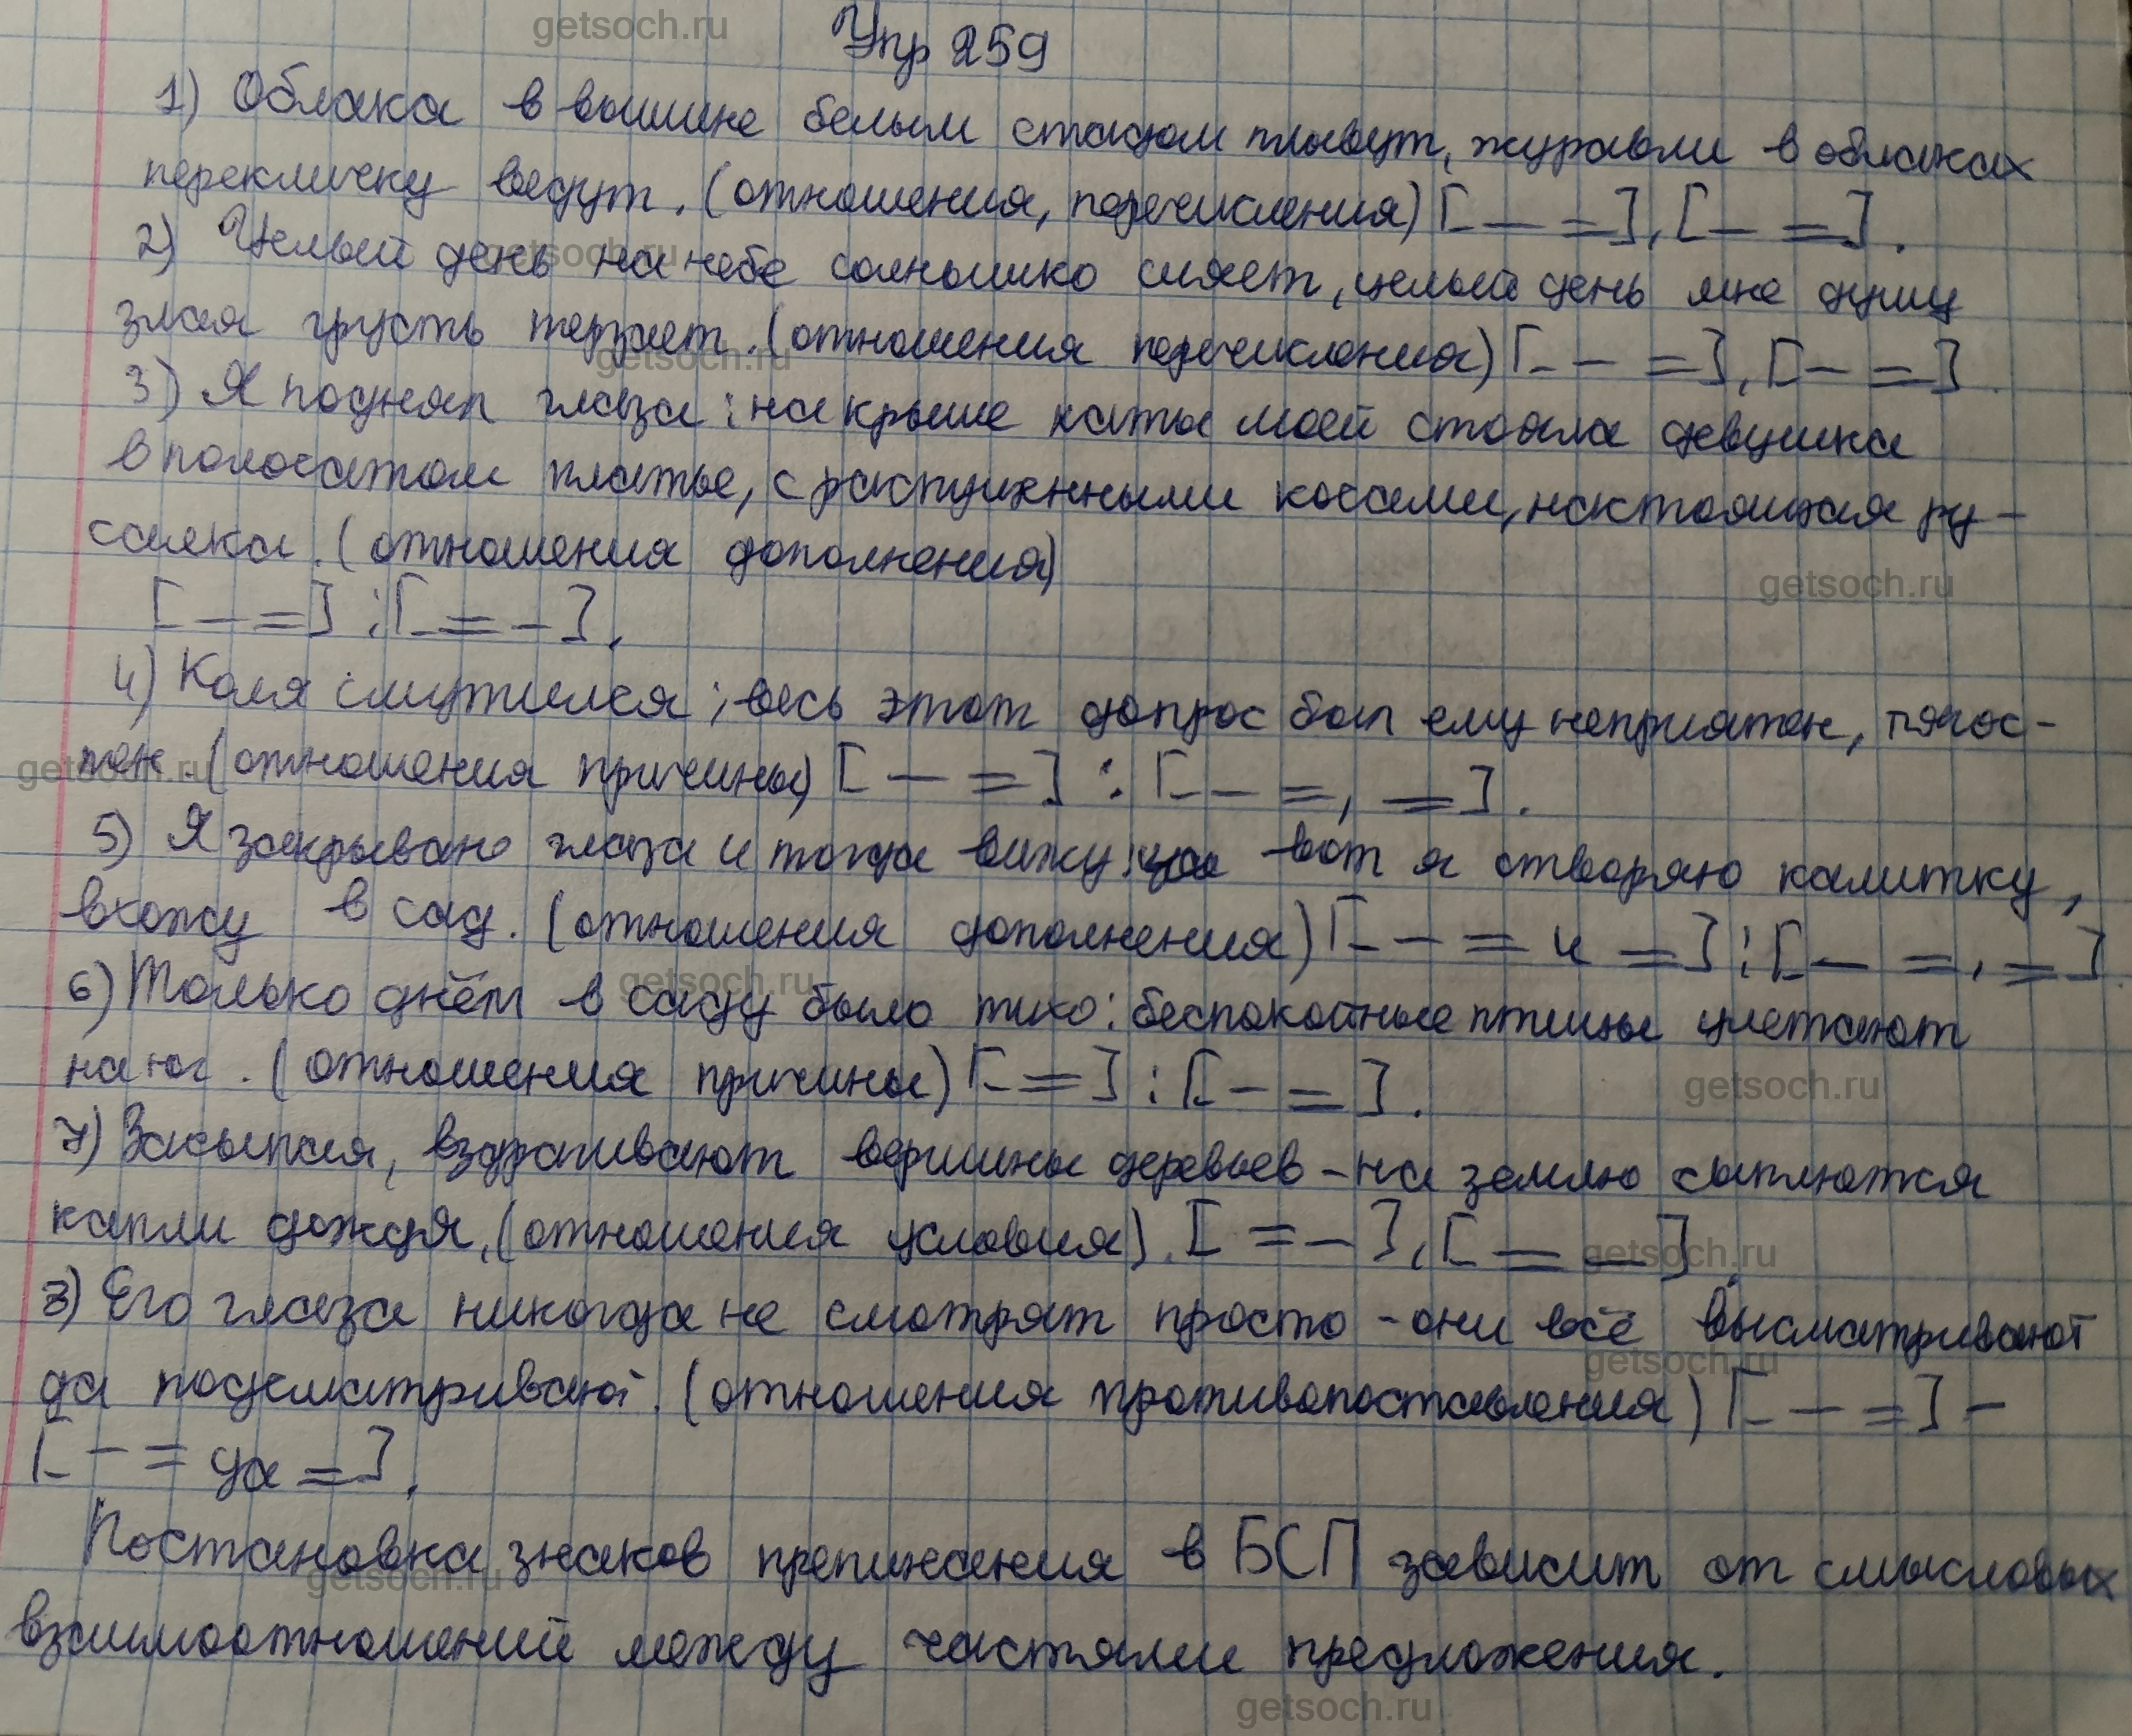 Упр 259
1) Облака в вышине белым стадом плывут, журавли в облаках
перекличку ведут. (отношения, перечисления) [– =], [– =].
2) Целый день на небе солнышко сияет, целый день мне душу
злая грусть терзает. (отношения перечисления) [– =], [– =].
3) Я поднял глаза: на крыше хаты моей стояла девушка
в полосатом платье, с распущенными косами, настоящая ру-
салка. (отношения дополнения)
[– =] : [= –].
4) Коля смутился: весь этот допрос был ему неприятен, тягос-
тен. (отношения причины) [– =] : [– =, =].
5) Я закрываю глаза и тогда вижу: вот я отворяю калитку,
вхожу в сад. (отношения дополнения) [– = и =] : [– =, =].
6) Только днём в саду было тихо: беспокойные птицы улетают
на юг. (отношения причины) [=] : [– =].
7) Засыпая, вздрагивают вершины деревьев – на землю сыплются
капли дождя. (отношения условия). [= –], [= –].
8) Его глаза никогда не смотрят просто – они всё высматривают
да подсматривают. (отношения противопоставления) [– =] –
[– = да =].
Постановка знаков препинания в БСП зависит от смысловых
взаимоотношений между частями предложения.
getsoch.ru
getsoch.ru
getsoch.ru
getsoch.ru
getsoch.ru
getsoch.ru
getsoch.ru
getsoch.ru
getsoch.ru
getsoch.ru
getsoch.ru
getsoch.ru